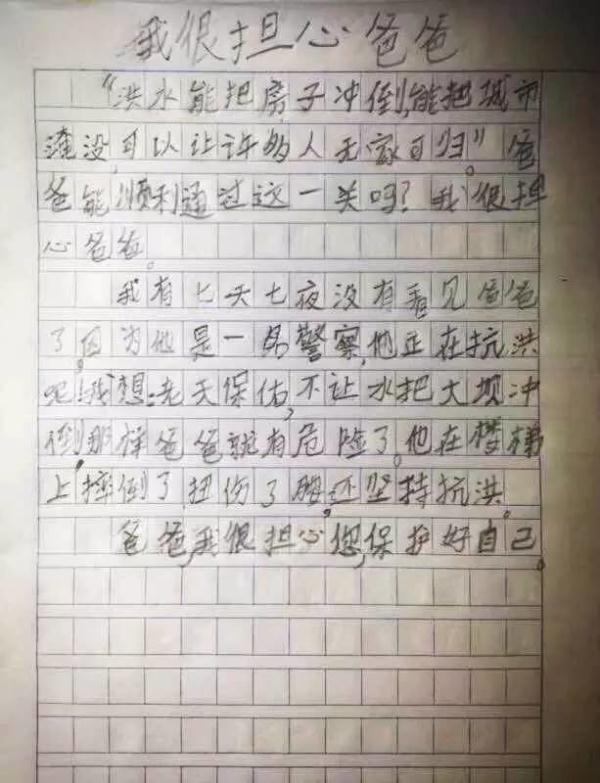 我很担心爸爸
“洪水能把房子冲倒,能把城市
淹没,可以让许多人无家可归”。爸
爸能顺利通过这一关吗?我很担
心爸爸。
我有七天七夜没有看见爸爸
了,因为他是一名警察,他正在抗洪
呢!我想:老天保佑,不让水把大坝冲
倒,那样爸爸就有危险了。他在楼梯
上摔倒了,扭伤了腰,还坚持抗洪。
爸爸,我很担心您,保护好自己。